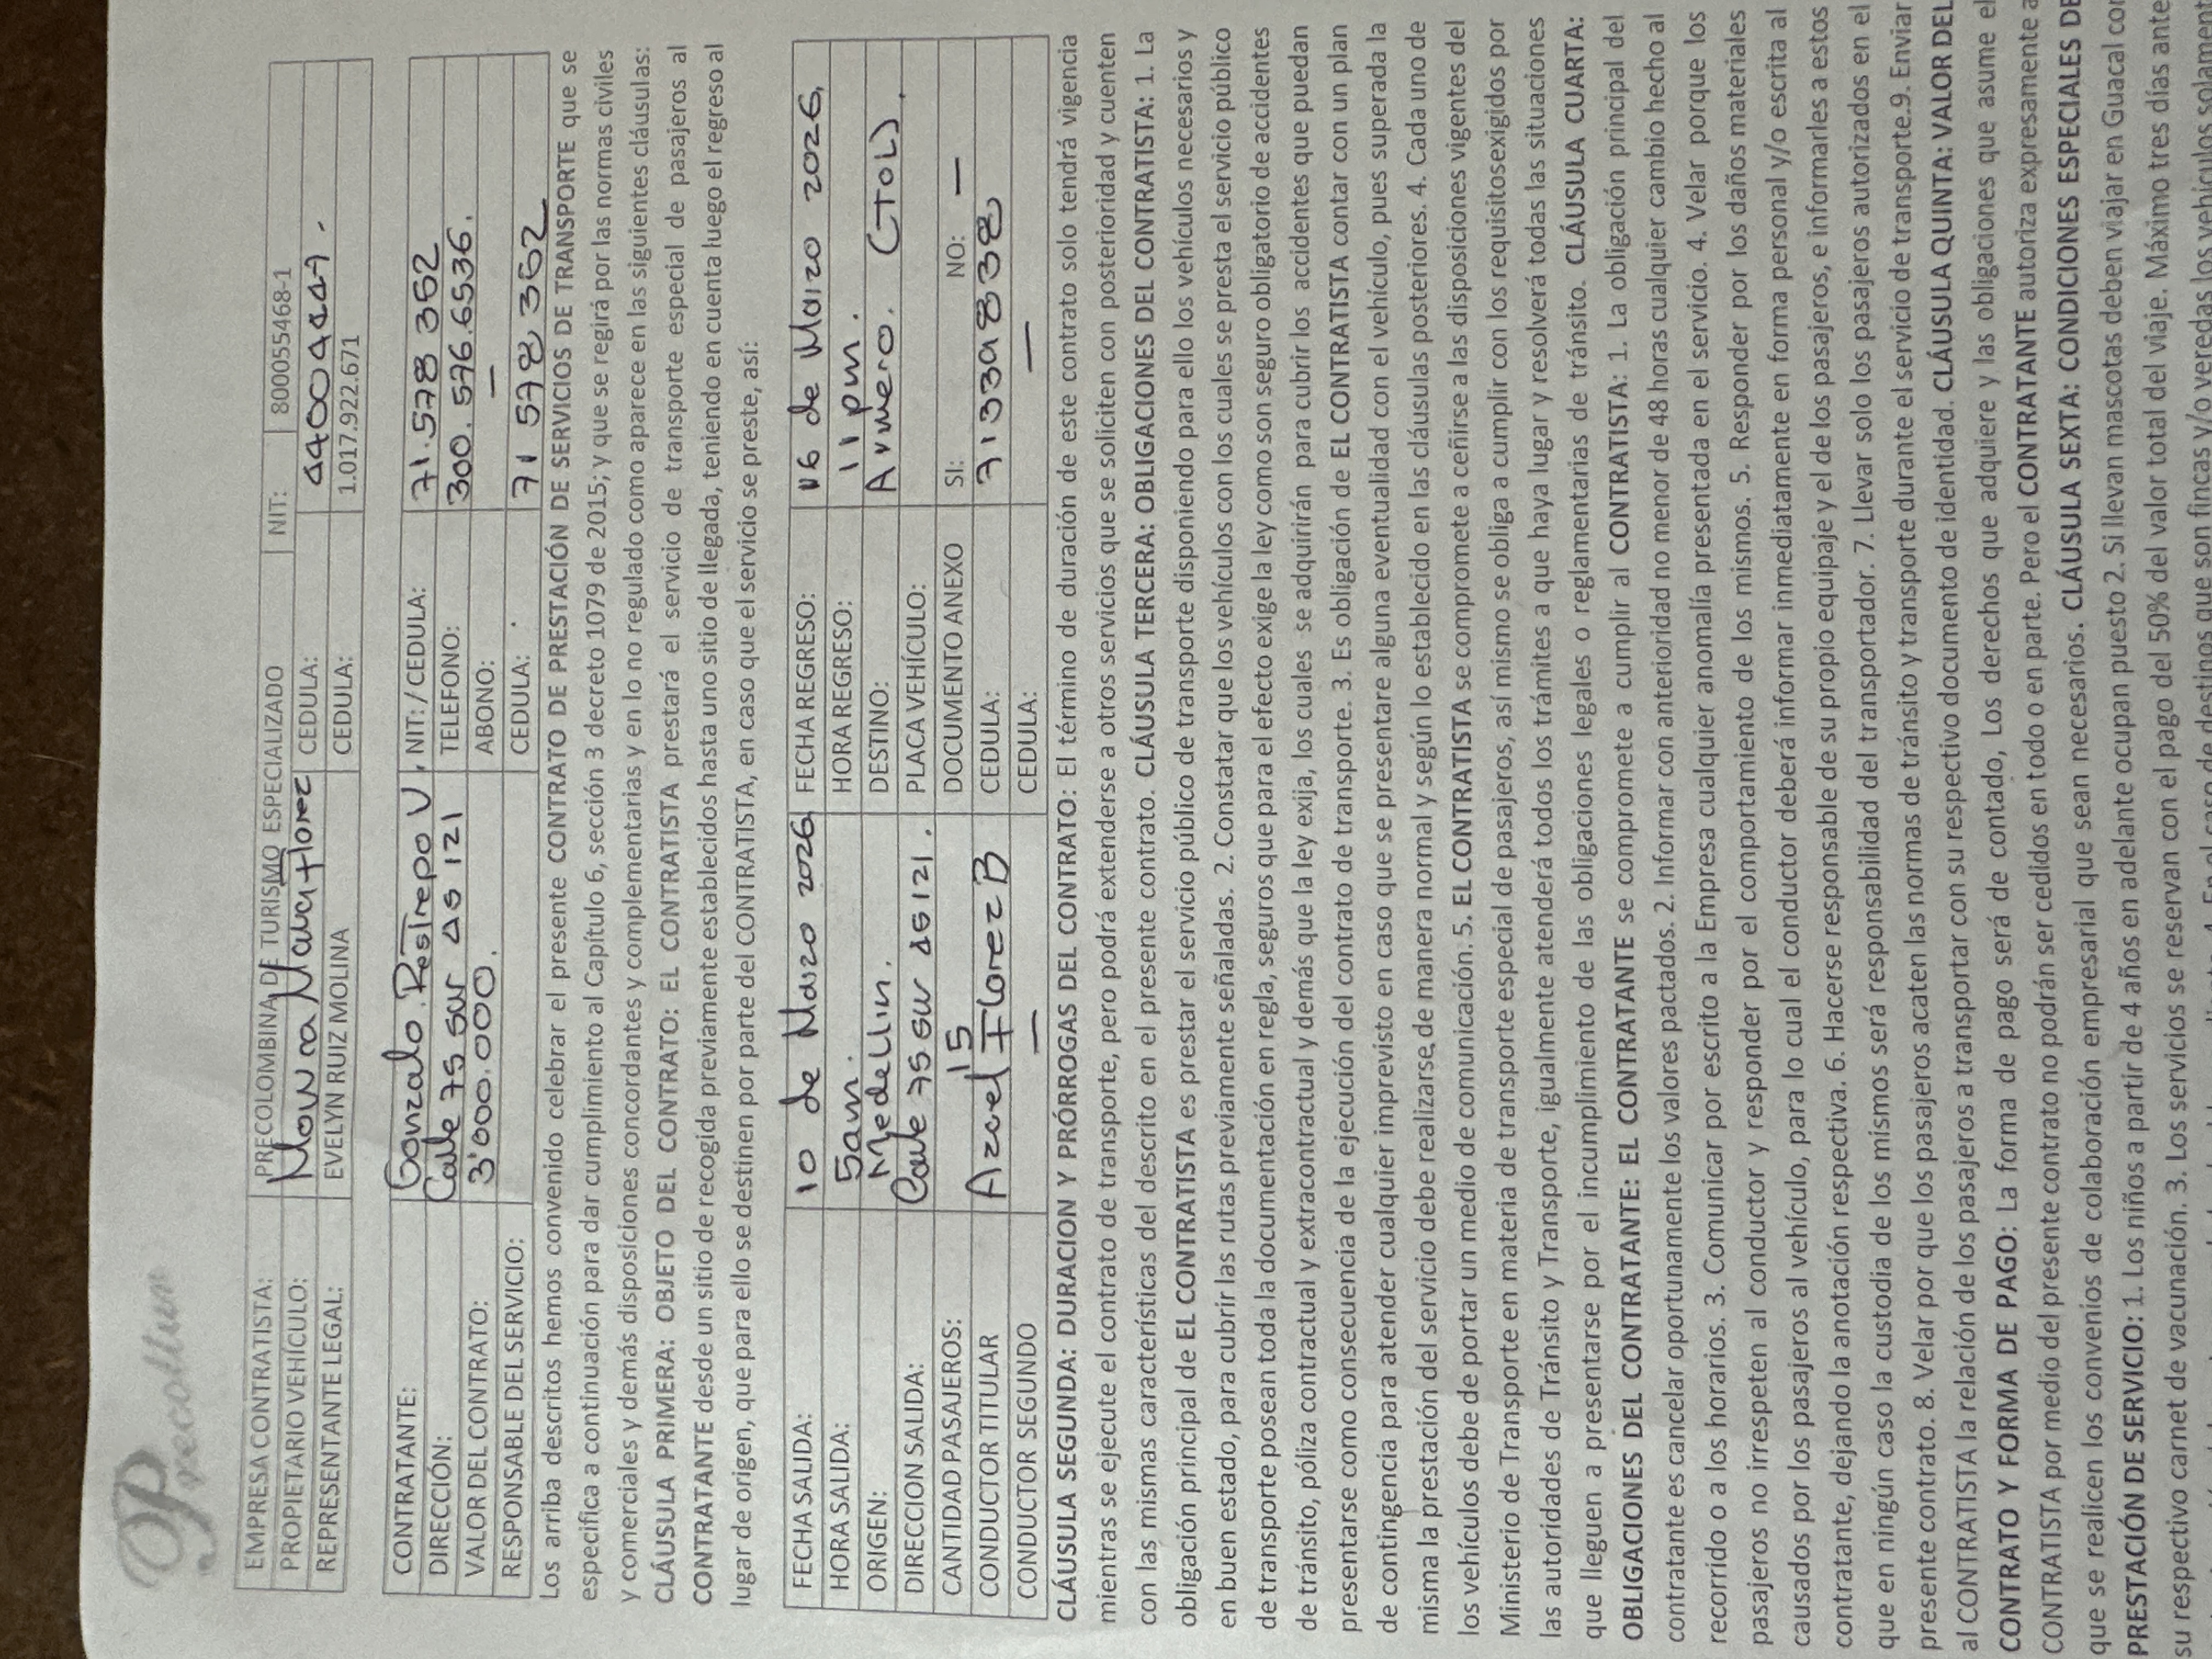 Precoltur
EMPRESA CONTRATISTA: PRECOLOMBINA DE TURISMO ESPECIALIZADO NIT: 800055468-1
PROPIETARIO VEHÍCULO: CEDULA:
REPRESENTANTE LEGAL: EVELYN RUIZ MOLINA CEDULA: 1.017.922.671
CONTRATANTE: Gonzalo Restrepo V, NIT: / CEDULA: 71.578 362
DIRECCIÓN: Calle 75 sur 45 121 TELEFONO: 300. 576.6536.
VALOR DEL CONTRATO: 3'000.000. ABONO: —
RESPONSABLE DEL SERVICIO: CEDULA: 71 578 362
Los arriba descritos hemos convenido celebrar el presente CONTRATO DE PRESTACIÓN DE SERVICIOS DE TRANSPORTE que se
especifica a continuación para dar cumplimiento al Capítulo 6, sección 3 decreto 1079 de 2015; y que se regirá por las normas civiles
y comerciales y demás disposiciones concordantes y complementarias y en lo no regulado como aparece en las siguientes cláusulas:
CLÁUSULA PRIMERA: OBJETO DEL CONTRATO: EL CONTRATISTA prestará el servicio de transporte especial de pasajeros al
CONTRATANTE desde un sitio de recogida previamente establecidos hasta uno sitio de llegada, teniendo en cuenta luego el regreso al
lugar de origen, que para ello se destinen por parte del CONTRATISTA, en caso que el servicio se preste, así:
FECHA SALIDA: 10 de Marzo 2026 FECHA REGRESO: 16 de Marzo 2026,
HORA SALIDA: 5am. HORA REGRESO: 11 pm.
ORIGEN: Medellin. DESTINO: Armero. (TOL).
DIRECCION SALIDA: Calle 75 sur 45 121. PLACA VEHÍCULO:
CANTIDAD PASAJEROS: 15 DOCUMENTO ANEXO SI: NO: —
CONDUCTOR TITULAR Azael Florez B CEDULA: 71339838
CONDUCTOR SEGUNDO — CEDULA: —
CLÁUSULA SEGUNDA: DURACION Y PRÓRROGAS DEL CONTRATO: El término de duración de este contrato solo tendrá vigencia
mientras se ejecute el contrato de transporte, pero podrá extenderse a otros servicios que se soliciten con posterioridad y cuenten
con las mismas características del descrito en el presente contrato. CLÁUSULA TERCERA: OBLIGACIONES DEL CONTRATISTA: 1. La
obligación principal de EL CONTRATISTA es prestar el servicio público de transporte disponiendo para ello los vehículos necesarios y
en buen estado, para cubrir las rutas previamente señaladas. 2. Constatar que los vehículos con los cuales se presta el servicio público
de transporte posean toda la documentación en regla, seguros que para el efecto exige la ley como son seguro obligatorio de accidentes
de tránsito, póliza contractual y extracontractual y demás que la ley exija, los cuales se adquirirán para cubrir los accidentes que puedan
presentarse como consecuencia de la ejecución del contrato de transporte. 3. Es obligación de EL CONTRATISTA contar con un plan
de contingencia para atender cualquier imprevisto en caso que se presentare alguna eventualidad con el vehículo, pues superada la
misma la prestación del servicio debe realizarse de manera normal y según lo establecido en las cláusulas posteriores. 4. Cada uno de
los vehículos debe de portar un medio de comunicación. 5. EL CONTRATISTA se compromete a ceñirse a las disposiciones vigentes del
Ministerio de Transporte en materia de transporte especial de pasajeros, así mismo se obliga a cumplir con los requisitosexigidos por
las autoridades de Tránsito y Transporte, igualmente atenderá todos los trámites a que haya lugar y resolverá todas las situaciones
que lleguen a presentarse por el incumplimiento de las obligaciones legales o reglamentarias de tránsito. CLÁUSULA CUARTA:
OBLIGACIONES DEL CONTRATANTE: EL CONTRATANTE se compromete a cumplir al CONTRATISTA: 1. La obligación principal del
contratante es cancelar oportunamente los valores pactados. 2. Informar con anterioridad no menor de 48 horas cualquier cambio hecho al
recorrido o a los horarios. 3. Comunicar por escrito a la Empresa cualquier anomalía presentada en el servicio. 4. Velar porque los
pasajeros no irrespeten al conductor y responder por el comportamiento de los mismos. 5. Responder por los daños materiales
causados por los pasajeros al vehículo, para lo cual el conductor deberá informar inmediatamente en forma personal y/o escrita al
contratante, dejando la anotación respectiva. 6. Hacerse responsable de su propio equipaje y el de los pasajeros, e informarles a estos
que en ningún caso la custodia de los mismos será responsabilidad del transportador. 7. Llevar solo los pasajeros autorizados en el
presente contrato. 8. Velar por que los pasajeros acaten las normas de tránsito y transporte durante el servicio de transporte.9. Enviar
al CONTRATISTA la relación de los pasajeros a transportar con su respectivo documento de identidad. CLÁUSULA QUINTA: VALOR DEL
CONTRATO Y FORMA DE PAGO: La forma de pago será de contado, Los derechos que adquiere y las obligaciones que asume el
CONTRATISTA por medio del presente contrato no podrán ser cedidos en todo o en parte. Pero el CONTRATANTE autoriza expresamente a
que se realicen los convenios de colaboración empresarial que sean necesarios. CLÁUSULA SEXTA: CONDICIONES ESPECIALES DE
PRESTACIÓN DE SERVICIO: 1. Los niños a partir de 4 años en adelante ocupan puesto 2. Si llevan mascotas deben viajar en Guacal con
su respectivo carnet de vacunación. 3. Los servicios se reservan con el pago del 50% del valor total del viaje. Máximo tres días ante
4. En el caso de destinos que son fincas y/o veredas los vehículos solament